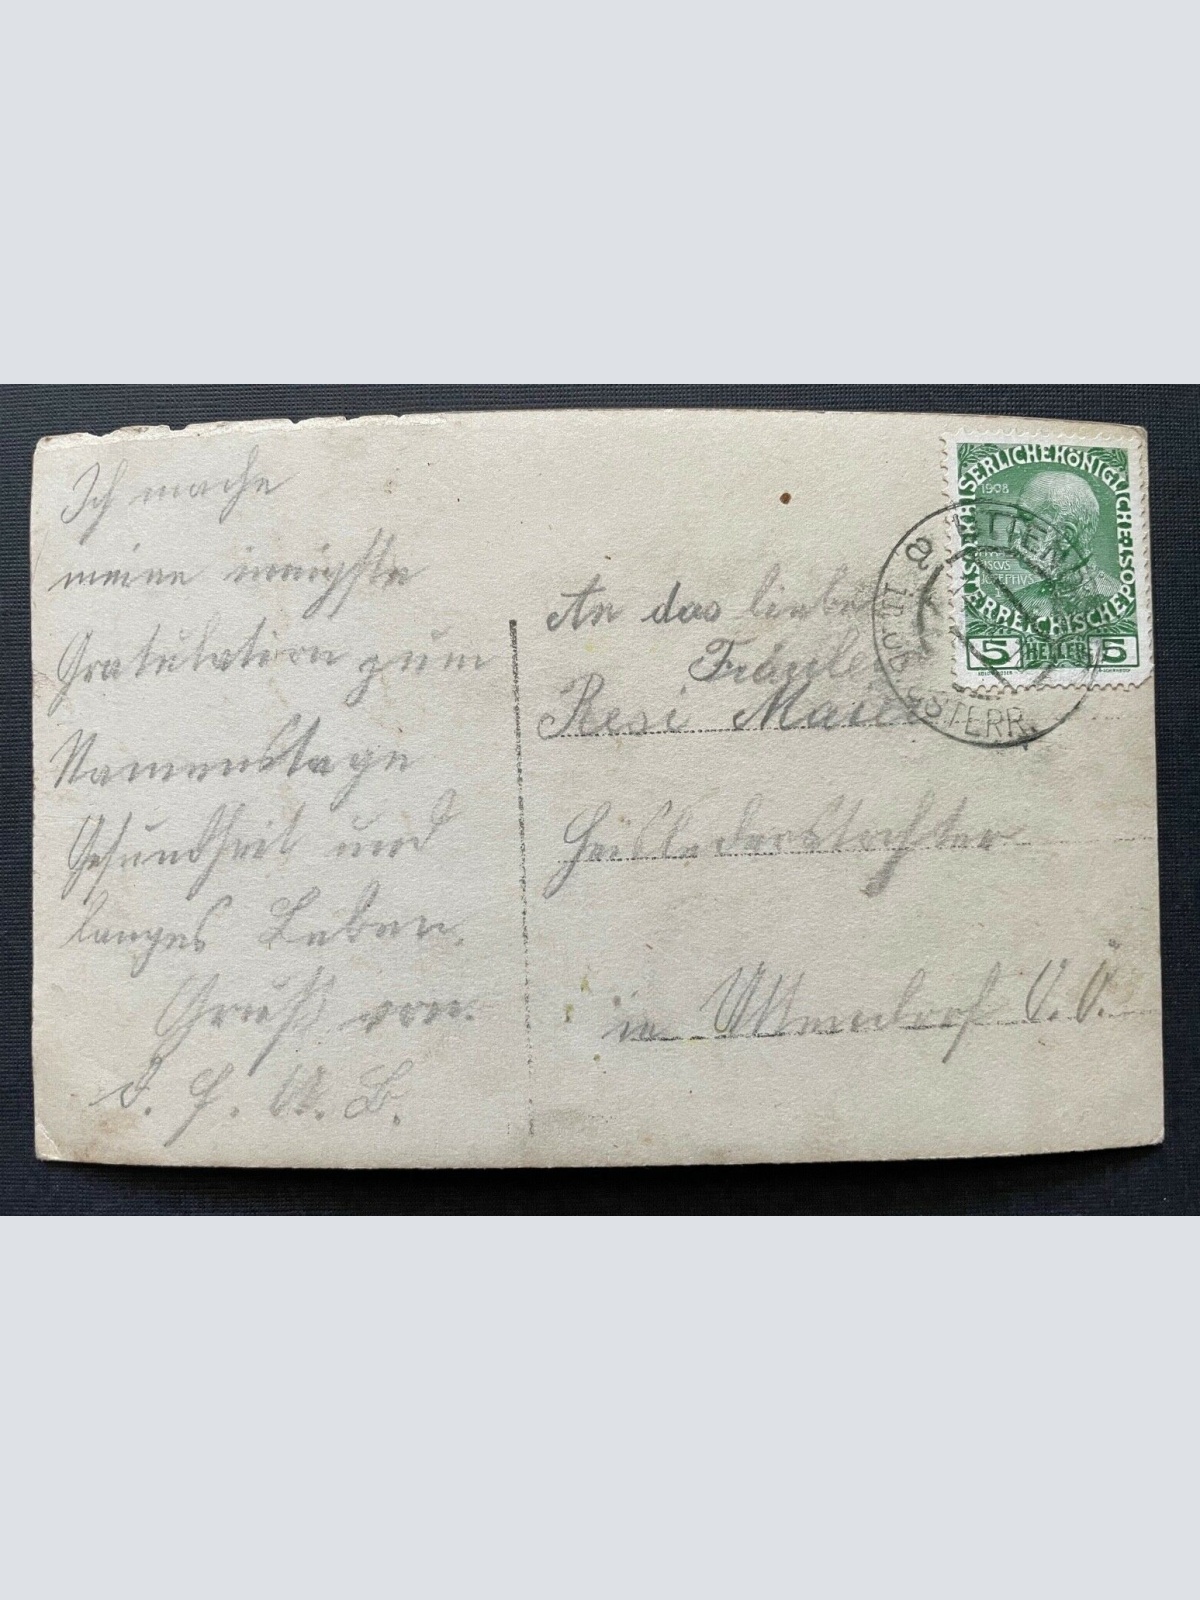 Ich mache
meine innigste
Gratulation zum
Namenstage
Gesundheit und
langes Leben.
Gruß von
An das liebe
Fräulein
Resi Maier
in Uttendorf O.Ö.
KAISERLICHEKÖNIGLICHE
ÖSTERREICHISCHE POST
1908
JOSEPHVS
5 HELLER 5
UTTENDORF
OB. ÖSTERR.